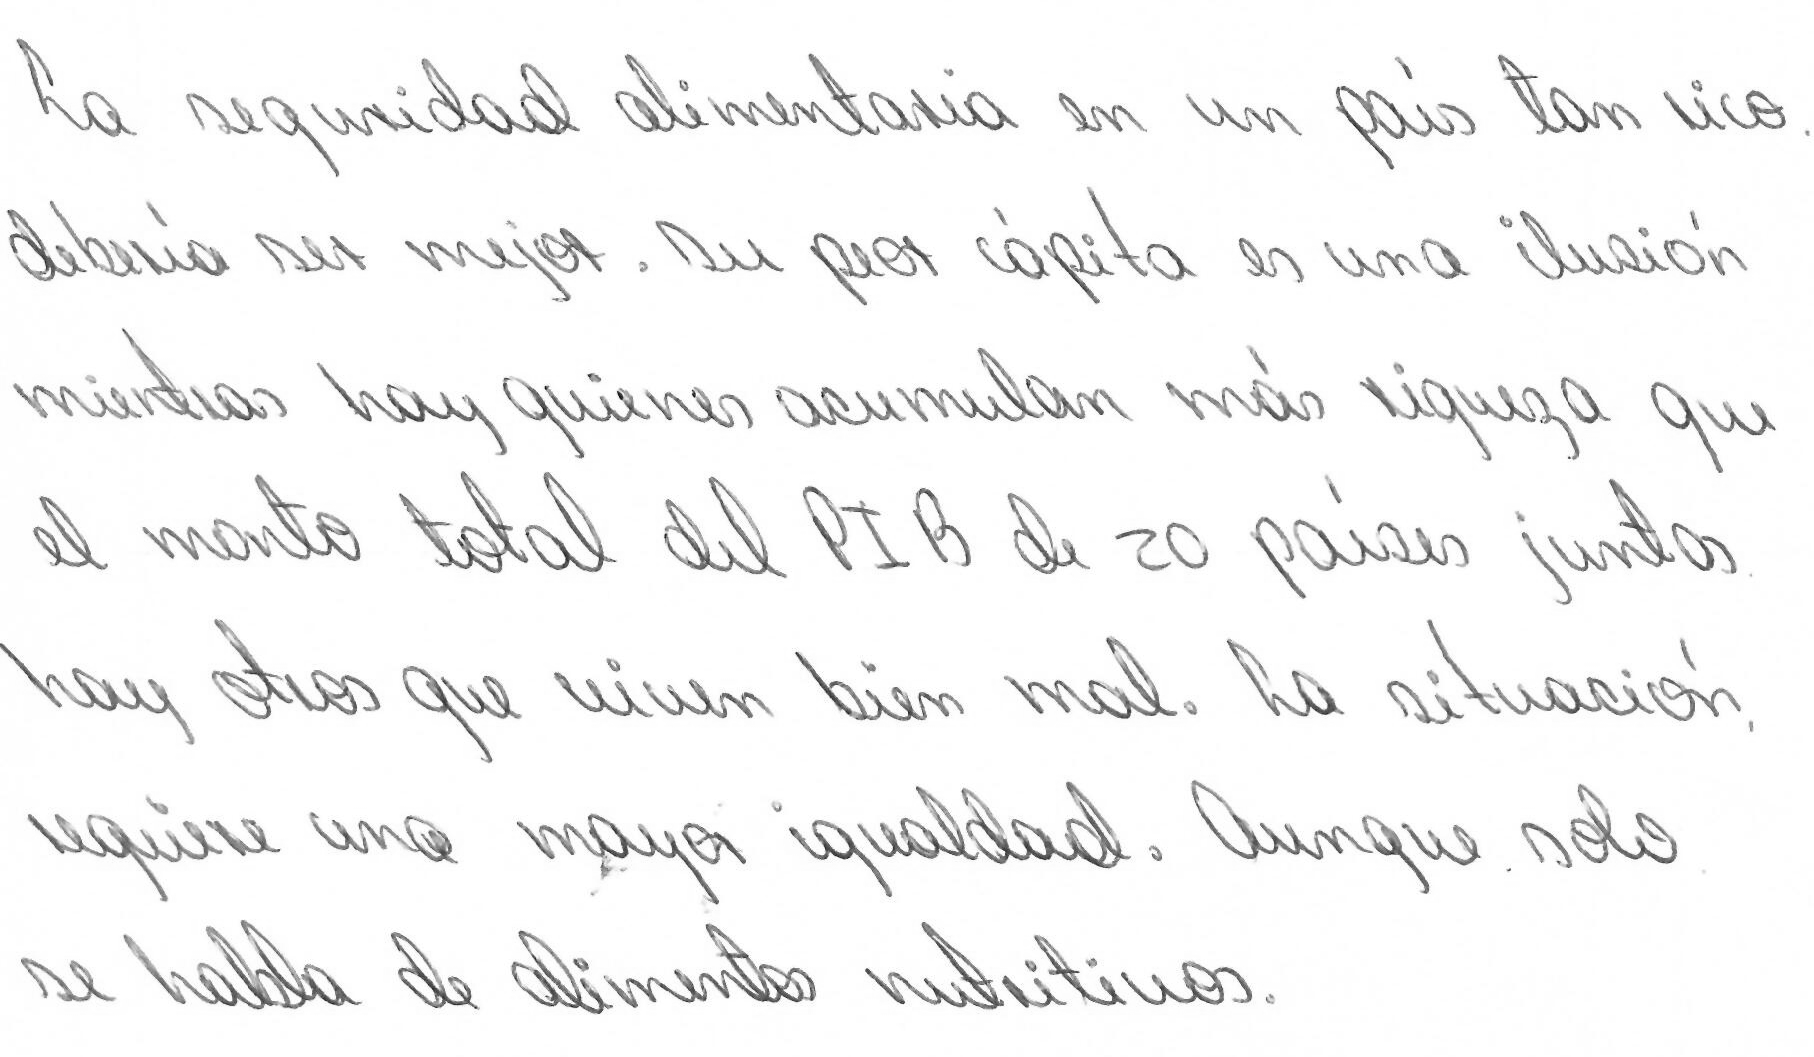 La seguridad alimentaria en un país tan rico
debería ser mejor. Su peor cápita es una ilusión
mientras hay quienes acumulan más riqueza que
el monto total del PIB de 20 países juntos
hay otros que viven bien mal. La situación,
requiere una mayor igualdad. Aunque solo
se habla de alimentos nutritivos.